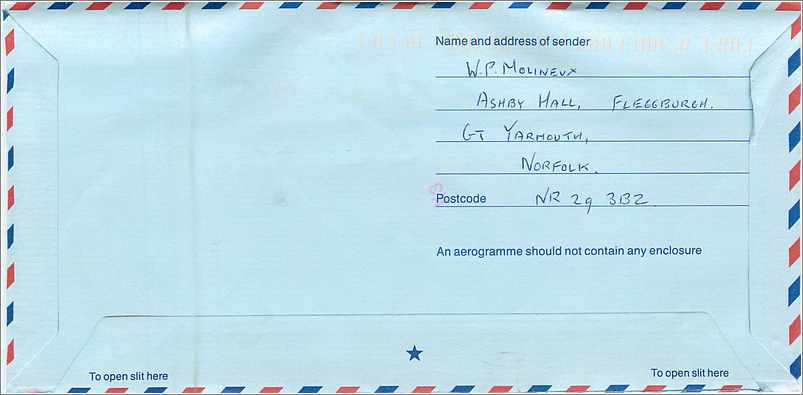 Name and address of sender
W.P. MOLINEUX
ASHBY HALL, FLEGGBURGH.
GT YARMOUTH,
NORFOLK.
Postcode NR 29 3BZ
An aerogramme should not contain any enclosure
To open slit here
To open slit here